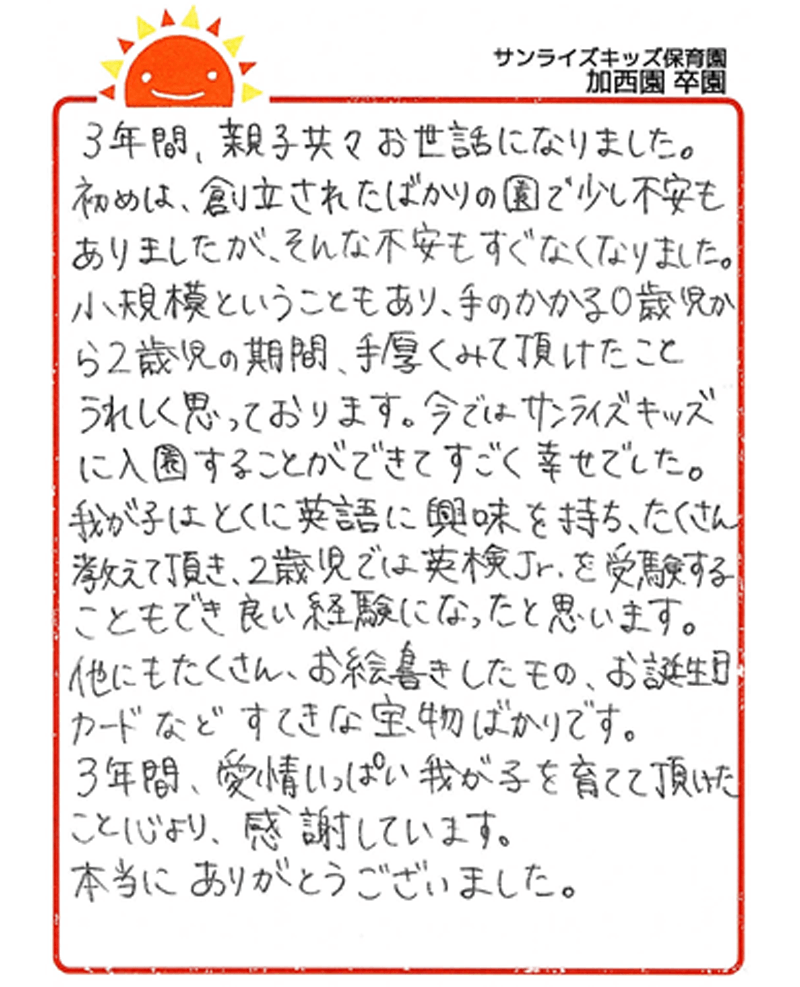 サンライズキッズ保育園
加西園 卒園
3年間、親子共々お世話になりました。
初めは、創立されたばかりの園で少し不安も
ありましたが、そんな不安もすぐなくなりました。
小規模ということもあり、手のかかる0歳児か
ら2歳児の期間、手厚くみて頂けたこと
うれしく思っております。今ではサンライズキッズ
に入園することができてすごく幸せでした。
我が子はとくに英語に興味を持ち、たくさん
教えて頂き、2歳児では英検Jr.を受験する
こともでき良い経験になったと思います。
他にもたくさん、お絵書きしたもの、お誕生日
カードなどすてきな宝物ばかりです。
3年間、愛情いっぱい我が子を育てて頂けた
こと心より、感謝しています。
本当にありがとうございました。